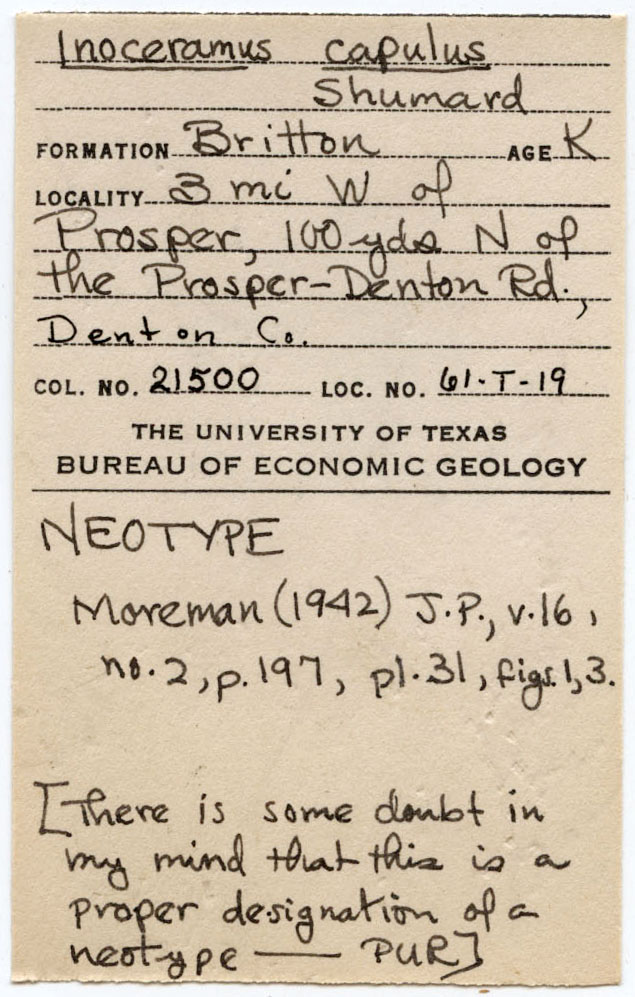 Inoceramus capulus
Shumard
FORMATION Britton AGE K
LOCALITY 3 mi W of
Prosper, 100 yds N of
the Prosper-Denton Rd.,
Denton Co.
COL. NO. 21500 LOC. NO. 61-T-19
THE UNIVERSITY OF TEXAS
BUREAU OF ECONOMIC GEOLOGY
NEOTYPE
Moreman (1942) J.P., v.16,
no.2, p.197, pl.31, figs.1,3.
[There is some doubt in
my mind that this is a
proper designation of a
neotype — PUR]